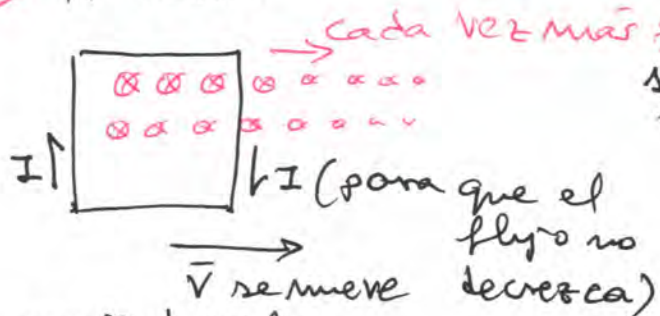 cada vez más
I
I (para que el
flujo no
decrezca)
v̄ se mueve